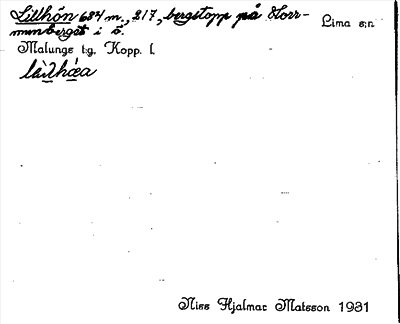 Lillhón 684 m., 217, bergstopp på Horr-
munberget i ö. Lima s:n
Malungs t:g, Kopp. l.
Niss Hjalmar Matsson 1931